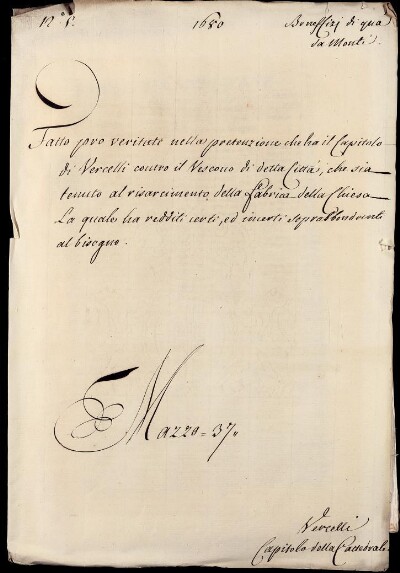 N.º 1.º
1680
Beneffizj di qua
da Monti.
Fatto pro veritate nella pretenzione che ha il Capitolo
di Vercelli contro il Vescovo di detta Città, che sia
tenuto al risarcimento della fabrica della Chiesa
La quale ha redditi certi, ed incerti soprabbondanti
al bisogno.
Mazzo = 37.
Vercelli
Capitolo della Cattedrale